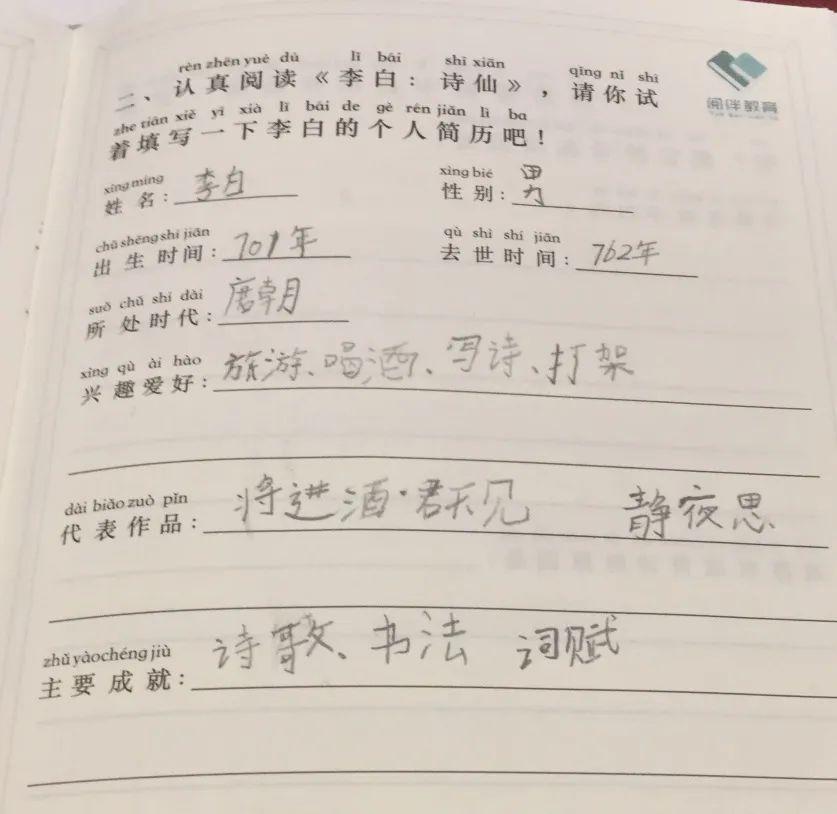 rèn zhēn yuè dú lǐ bái shī xiān qǐng nǐ shì
二、认真阅读《李白：诗仙》，请你试
zhe tián xiě yī xià lǐ bái de gè rén jiǎn lì ba
着填写一下李白的个人简历吧！
阅伴教育
xìng míng xìng bié
姓名：李白 性别：男
chū shēng shí jiān qù shì shí jiān
出生时间：701年 去世时间：762年
suǒ chǔ shí dài
所处时代：唐朝
xìng qù ài hào
兴趣爱好：旅游、喝酒、写诗、打架
dài biǎo zuò pǐn
代表作品：将进酒·君不见 静夜思
zhǔ yào chéng jiù
主要成就：诗歌、书法 词赋